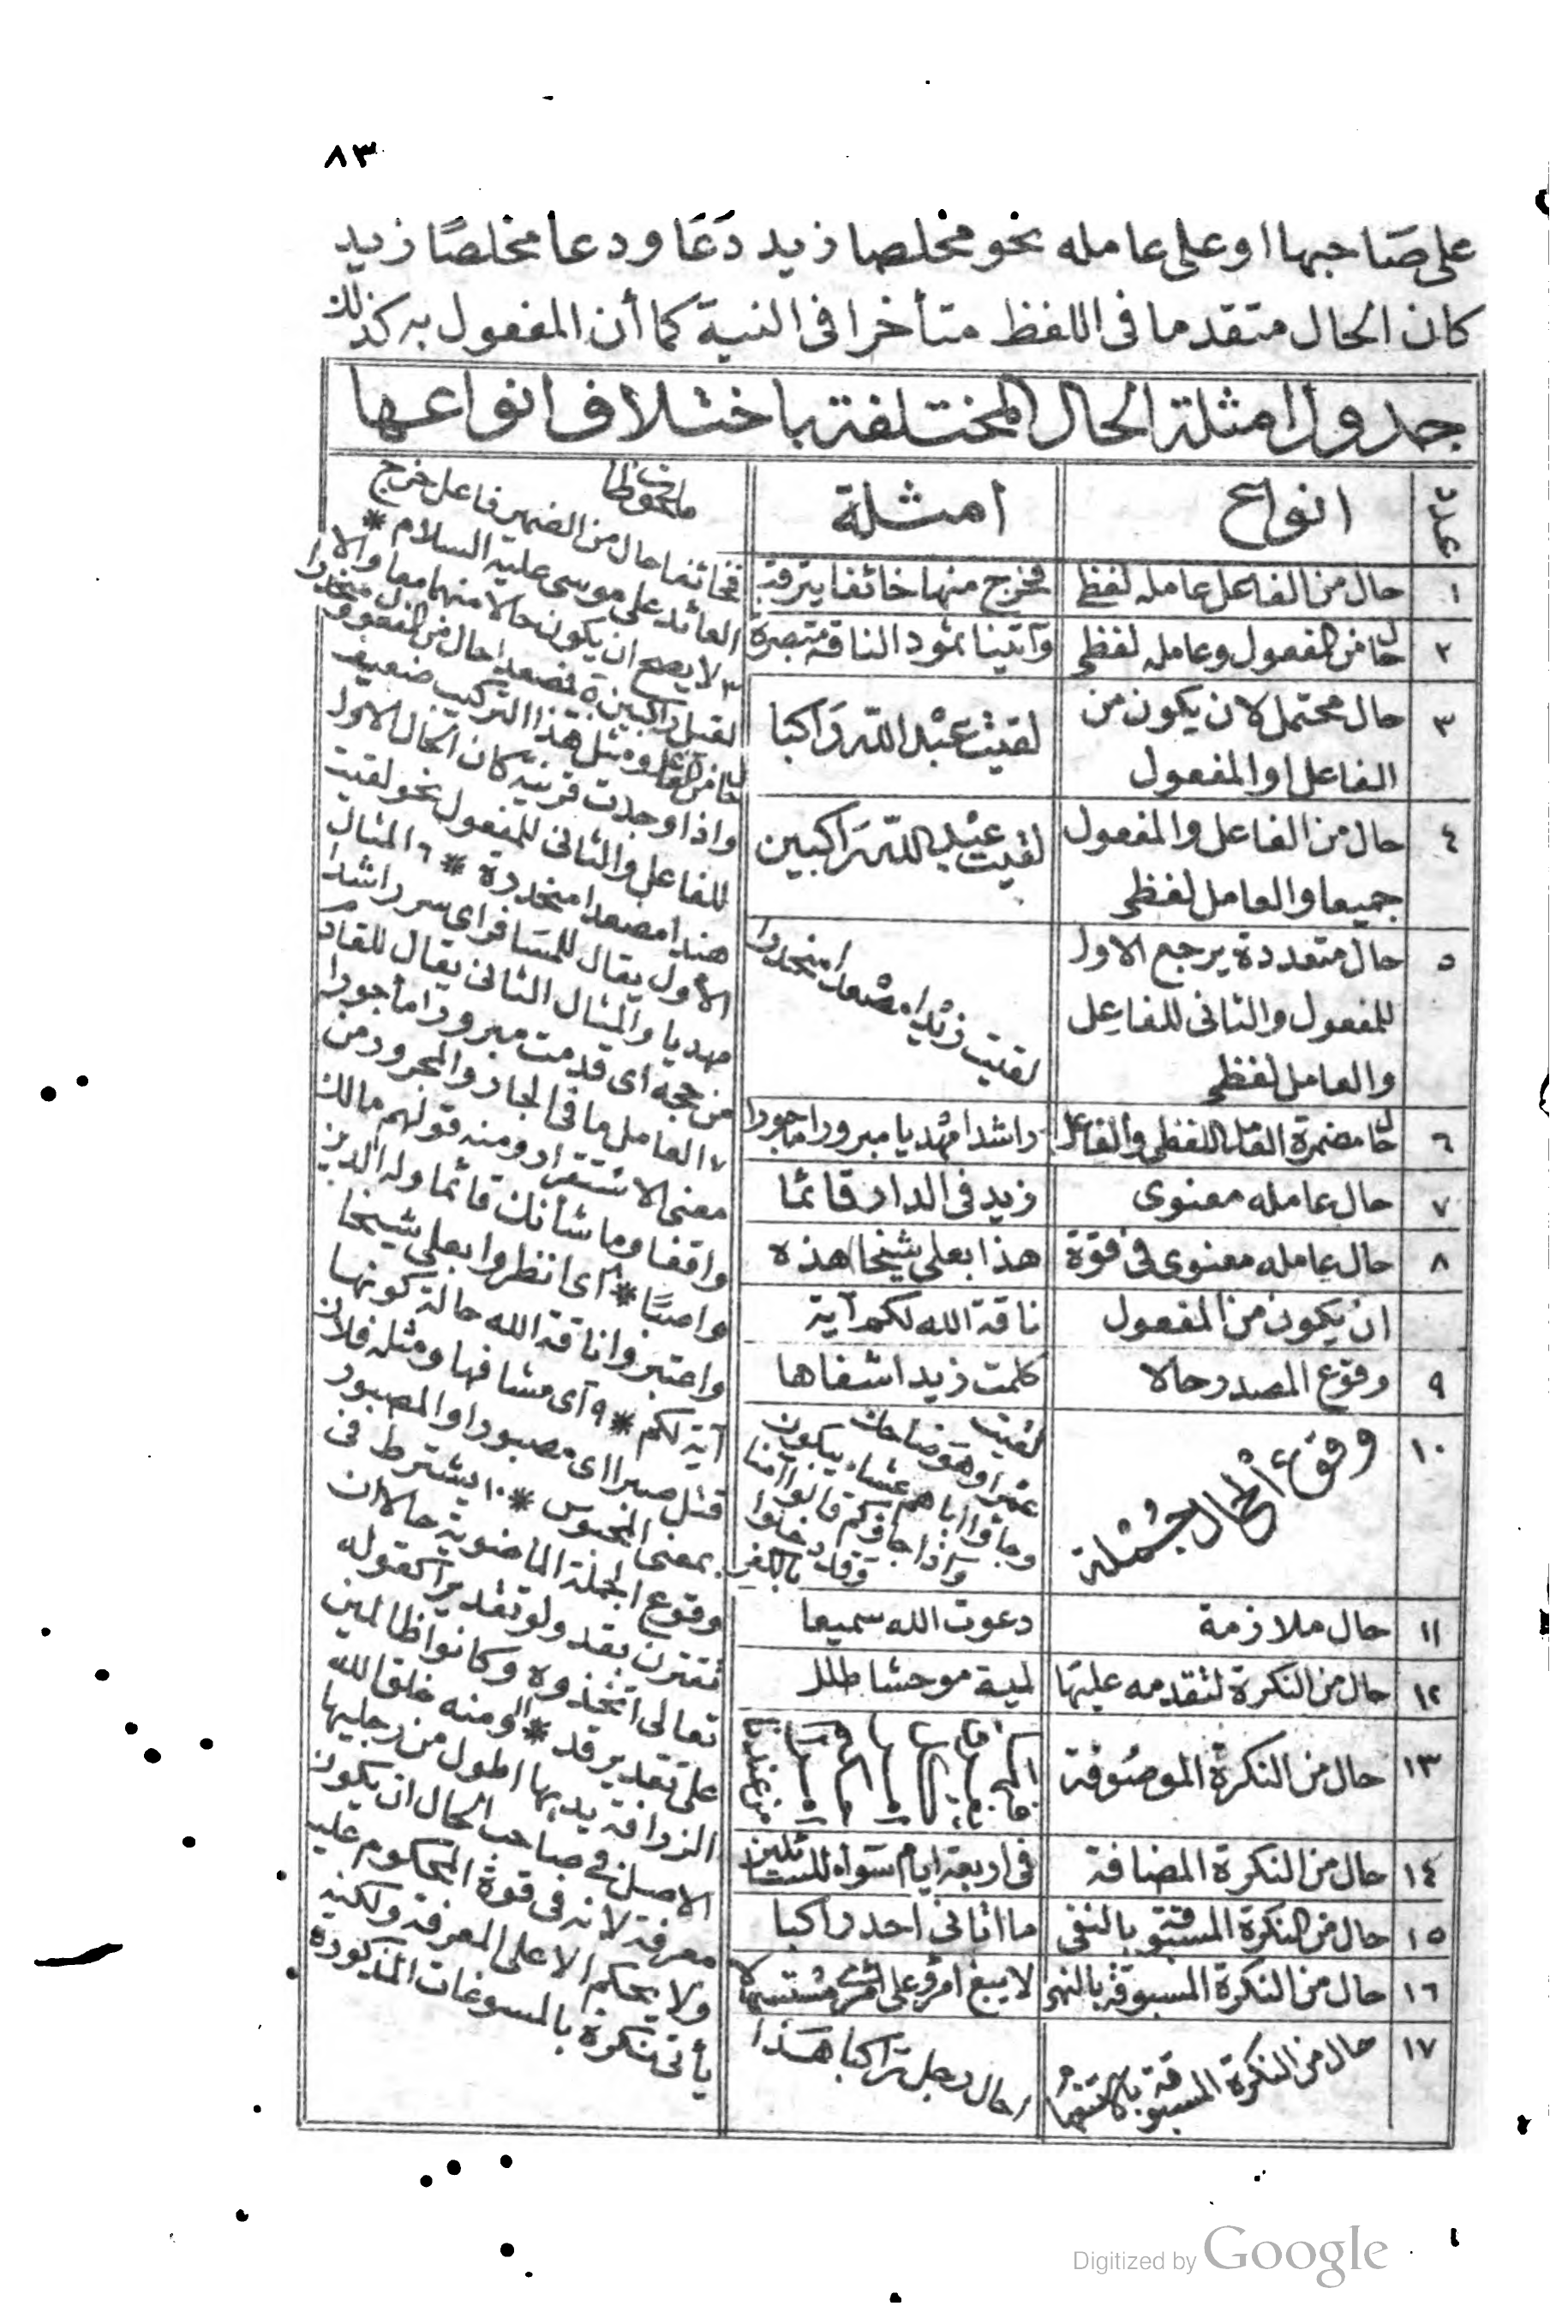 ٨٣
على صَاحبها او على عامله نحو مخلصا زيد دَعَا ودعا مخلصًا زيد
كان الحال متقدما فى اللفظ متأخرا فى النية كما أن المفعول به كذلك
جدول امثلة الحال المختلفة باختلاف انواعها
عدد
انواع
امثلة
ملحوظات
١ حال من الفاعل عامله لفظى
فخرج منها خائفا يترقب
٢ حال من المفعول وعامله لفظى
وآتينا ثمود الناقة مبصرة
٣ حال محتمل لان يكون من
الفاعل او المفعول
لقيتُ عبْد اللّه رَاكبا
٤ حال من الفاعل والمفعول
جميعا والعامل لفظى
لقيت عبْد اللّه رَاكبين
٥ حال متعددة يرجع الاول
للمفعول والثانى للفاعل
والعامل لفظى
لقيت زيْدا مصْعدا منحدرا
٦ حال مضمرة العامل اللفظى والفاعل
راشدا مهْديا مبرورا ماجورا
٧ حال عامله معنوى
زيد فى الدار قائما
٨ حال عامله معنوى فى قوّة
ان يكون من المفعول
هذا بعلى شيخا هذه
ناقة الله لكم آية
٩ وقوع المصدر حالا
كلمت زيدا شفاها
١٠ وقوع الحال جُمْلة
لقيت
عمْرا وهو ضاحك
وجاؤا اباهم عشاء يبكون
وَاذا جاؤكم قالوا آمنا
وَقد دخلوا بالكفر
١١ حال ملازمة
دعوت الله سميعا
١٢ حال من النكرة لتقدمه عليهَا
لمية موحشا طلل
١٣ حال من النكرة الموصُوفة
من عندنا
١٤ حال من النكرة المضافة
فى اربعة ايام سَوَاء للسائلين
١٥ حال من النكرة المسبوقة بالنفى
ما اتانى احد راكبا
١٦ حال من النكرة المسبوقة بالنهى
لا يبغ امرؤ على امرئ مُستسهلا
١٧ حال من النكرة المسبوقة بالاستفهام
احال رجل رَاكبا هَذا
فخائفا حال من الضمير فاعل خرج
العائد على موسى عليه السلام *
٣ لا يصح ان يكون حالا منهما معا والا
لقيل راكبين ٥ فمصعدا حال من المفعول ومنحدرا
حال من الفاعل ومثل هذا التركيب ضعيف
واذا وجدت قرينة كان الحال الاول
للفاعل والثانى للمفعول نحو لقيت
هندا مصعدا منحدرة * ٦ المثال
الأول يقال للمسَافر اى سر راشدا
مهديا والمثال الثانى يقال للقادم
من حجه اى قدمت مبرورا مأجورا
٧ العامل ما فى الجار والمجرور من
معنى الاستقرار ومنه قولهم مالك
واقفا وما شأنك قائما وله الدين
واصبًا * ٨ اى انظروا بعلى شيخا
واعتبروا ناقة الله حالة كونها
آية لكم * ٩ آى مشافها ومثله فلان
قتل صبرا اى مصبورا والمصبور
بمعنى المحبوس * ١٠ يشترط فى
وقوع الجملة الماضوية حالا ان
تقترن بقد ولو تقديرا كقوله
تعالى اتخذوه وكانوا ظالمين
على تقدير قد * ١١ ومنه خلق الله
الزرافة يديها اطول من رجليها
الاصل فى صاحب الحال ان يكون
معرفة لانه فى قوة المحكوم عليه
ولا يحكم الا على المعرفة ولكنه
يأتى نكرة بالمسوغات المذكورة
Digitized by Google